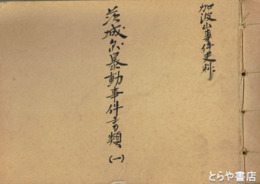 加波山事件史料
茨城県暴動事件書類
(一)
とらや書店